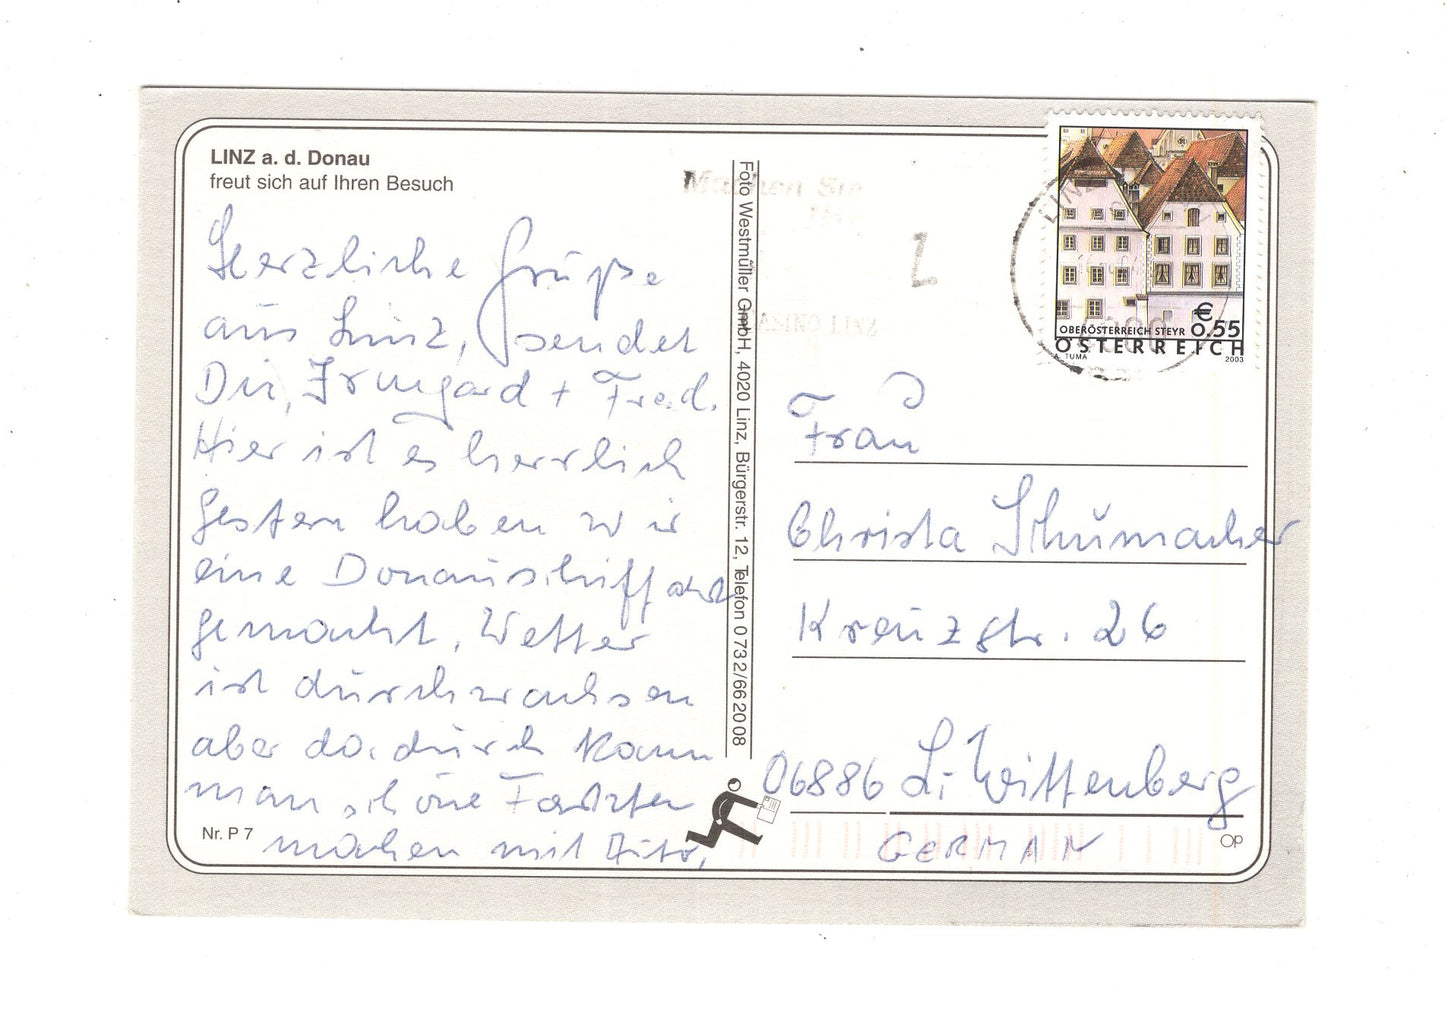 LINZ a. d. Donau
freut sich auf Ihren Besuch
Herzliche Grüße
aus Linz, sendet
Dir, Irmgard + Fred.
Hier ist es herrlich
gestern haben wir
eine Donauschifffahrt
gemacht, Wetter
ist durchwachsen
aber da.durch kann
man schöne Fahrten
machen mit Auto,
Nr. P 7
Foto Westmüller GmbH, 4020 Linz, Bürgerstr. 12, Telefon 0 732/66 20 08
Machen Sie
CASINO LINZ
LINZ
4020
OBERÖSTERREICH STEYR
€
0.55
ÖSTERREICH
A. TUMA
2003
Frau
Christa Schumacher
Kreuzstr. 26
06886 L. Wittenberg
GERMAN
Op